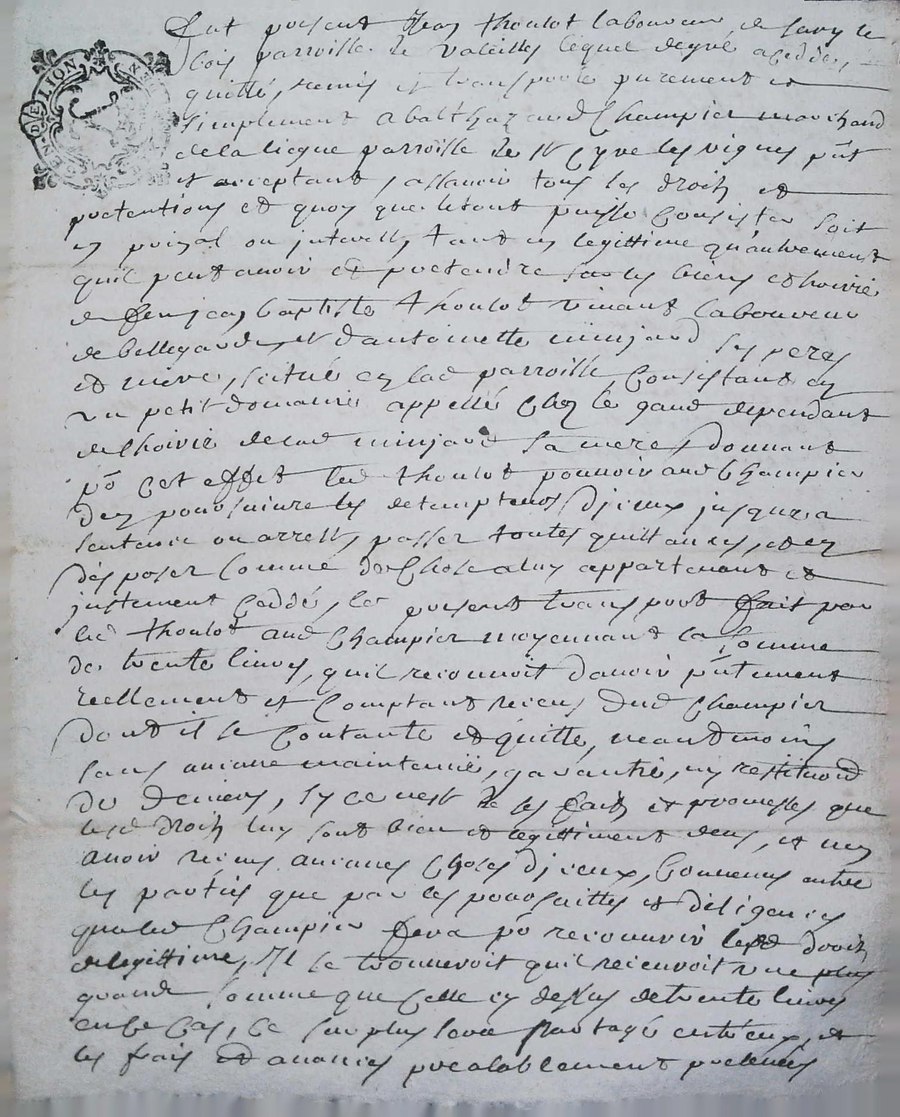 GEN. DE LION
Fut present Jean Thoulot laboureur de Savy le
bois parroisse de Valeilles lequel de gré a ceddé,
quitté, remis et transporté purement et
simplement a balthazard Champier marchand
de la ligue parroisse de St Cyre les vignes pñt
et acceptant, assauoir tous les droits et
pretentions et quoy que le tout puisse Consister soit
en prinpal ou interests, tant en legittime qu'autrement
quil peut auoir et pretendre sur les biens et hoirie
de feu jean baptiste Thoulot viuant laboureur
de bellegarde, et d'antoinette minjard ses pere
et mere, scitué en lad parroisse, Consistant en
un petit domaine appellé Chez le gand dependant
de lhoirie de lad minjard sa mere, donnant
po cet effet led thoulot pouuoir aud Champier
den poursuiure les detempteurs djceux jusques a
sentence ou arrest, passer toutes quittances, et en
disposer Comme de Chose a luy appartenant et
justement Ceddé, le present transport fait par
led thoulot aud Champier moyennant la somme
de trente liures, quil reconnoit d'auoir pñtement
reellement et Comptant receus dud Champier
dont il se Contante et quitte, neantmoins
sans aucune maintenüe, garantie, ny restitution
de deniers, sy ce nest de ses faits et promesses que
lesd droits luy sont bien et legittiment deus, et ny
auoir receus aucunes Choses djceux, Conuenus entre
les parties que par les poursuittes et diligences
que led Champier fera po recouurir lesd droits
de legittime, Il se trouueroit quil receuroit une plus
grande somme que celle cy dessus de trente liures
en ce Cas, Le surplus sera partagé entreux, et
les frais et auances prealablement preleués